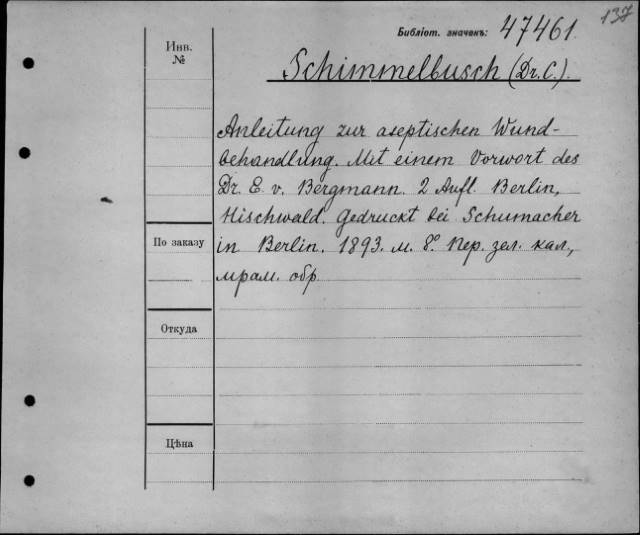 137
Библіот. значекъ: 47461.
Инв.
№
Schimmelbusch (Dr. C.).
Anleitung zur aseptischen Wund-
behandlung. Mit einem Vorwort des
Dr. E. v. Bergmann. 2 Aufl. Berlin,
Hischwald. Gedruckt bei Schumacher
По заказу
in Berlin. 1893. м. 8° Пер. зел. кал,
мрам. обр
Откуда
Цѣна